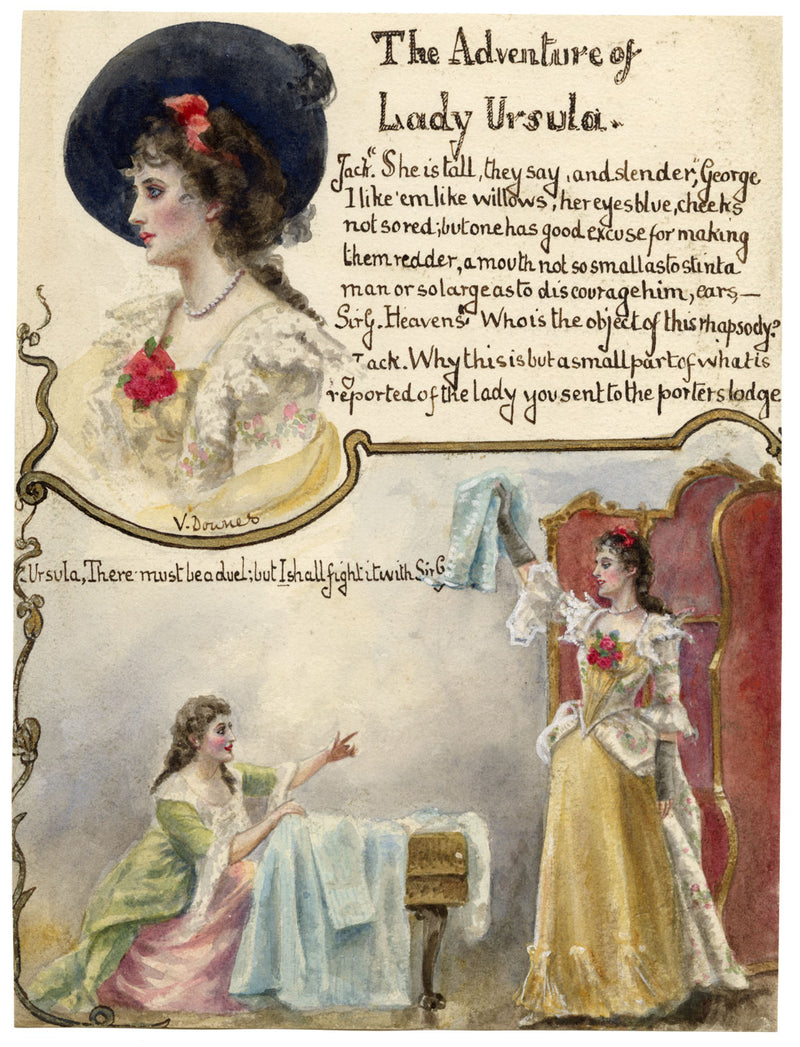 The Adventure of
Lady Ursula.
Jack. "She is tall, they say, and slender," George
I like 'em like willows; her eyes blue, cheeks
not so red; but one has good excuse for making
them redder, a mouth not so small as to stint a
man or so large as to discourage him, ears,—
Sir G. Heavens! Who is the object of this rhapsody?
Jack. Why this is but a small part of what is
reported of the lady you sent to the porters lodge
V. Downes
Ursula, There must be a duel; but I shall fight it with Sir G.